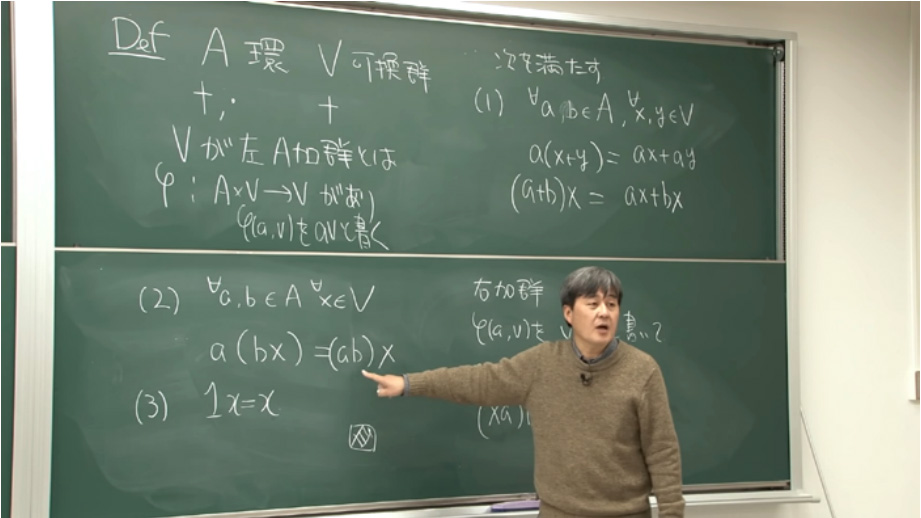 Def A 環 V 可換群
+, · +
Vが左A加群とは
φ : A×V→V があり
φ(a,v)をavと書く
次を満たす
(1) ∀a,b∈A, ∀x,y∈V
a(x+y) = ax+ay
(a+b)x = ax+bx
(2) ∀a,b∈A ∀x∈V
a(bx) = (ab)x
(3) 1x=x
右加群
φ(a,v)を v 書いて
(xa)